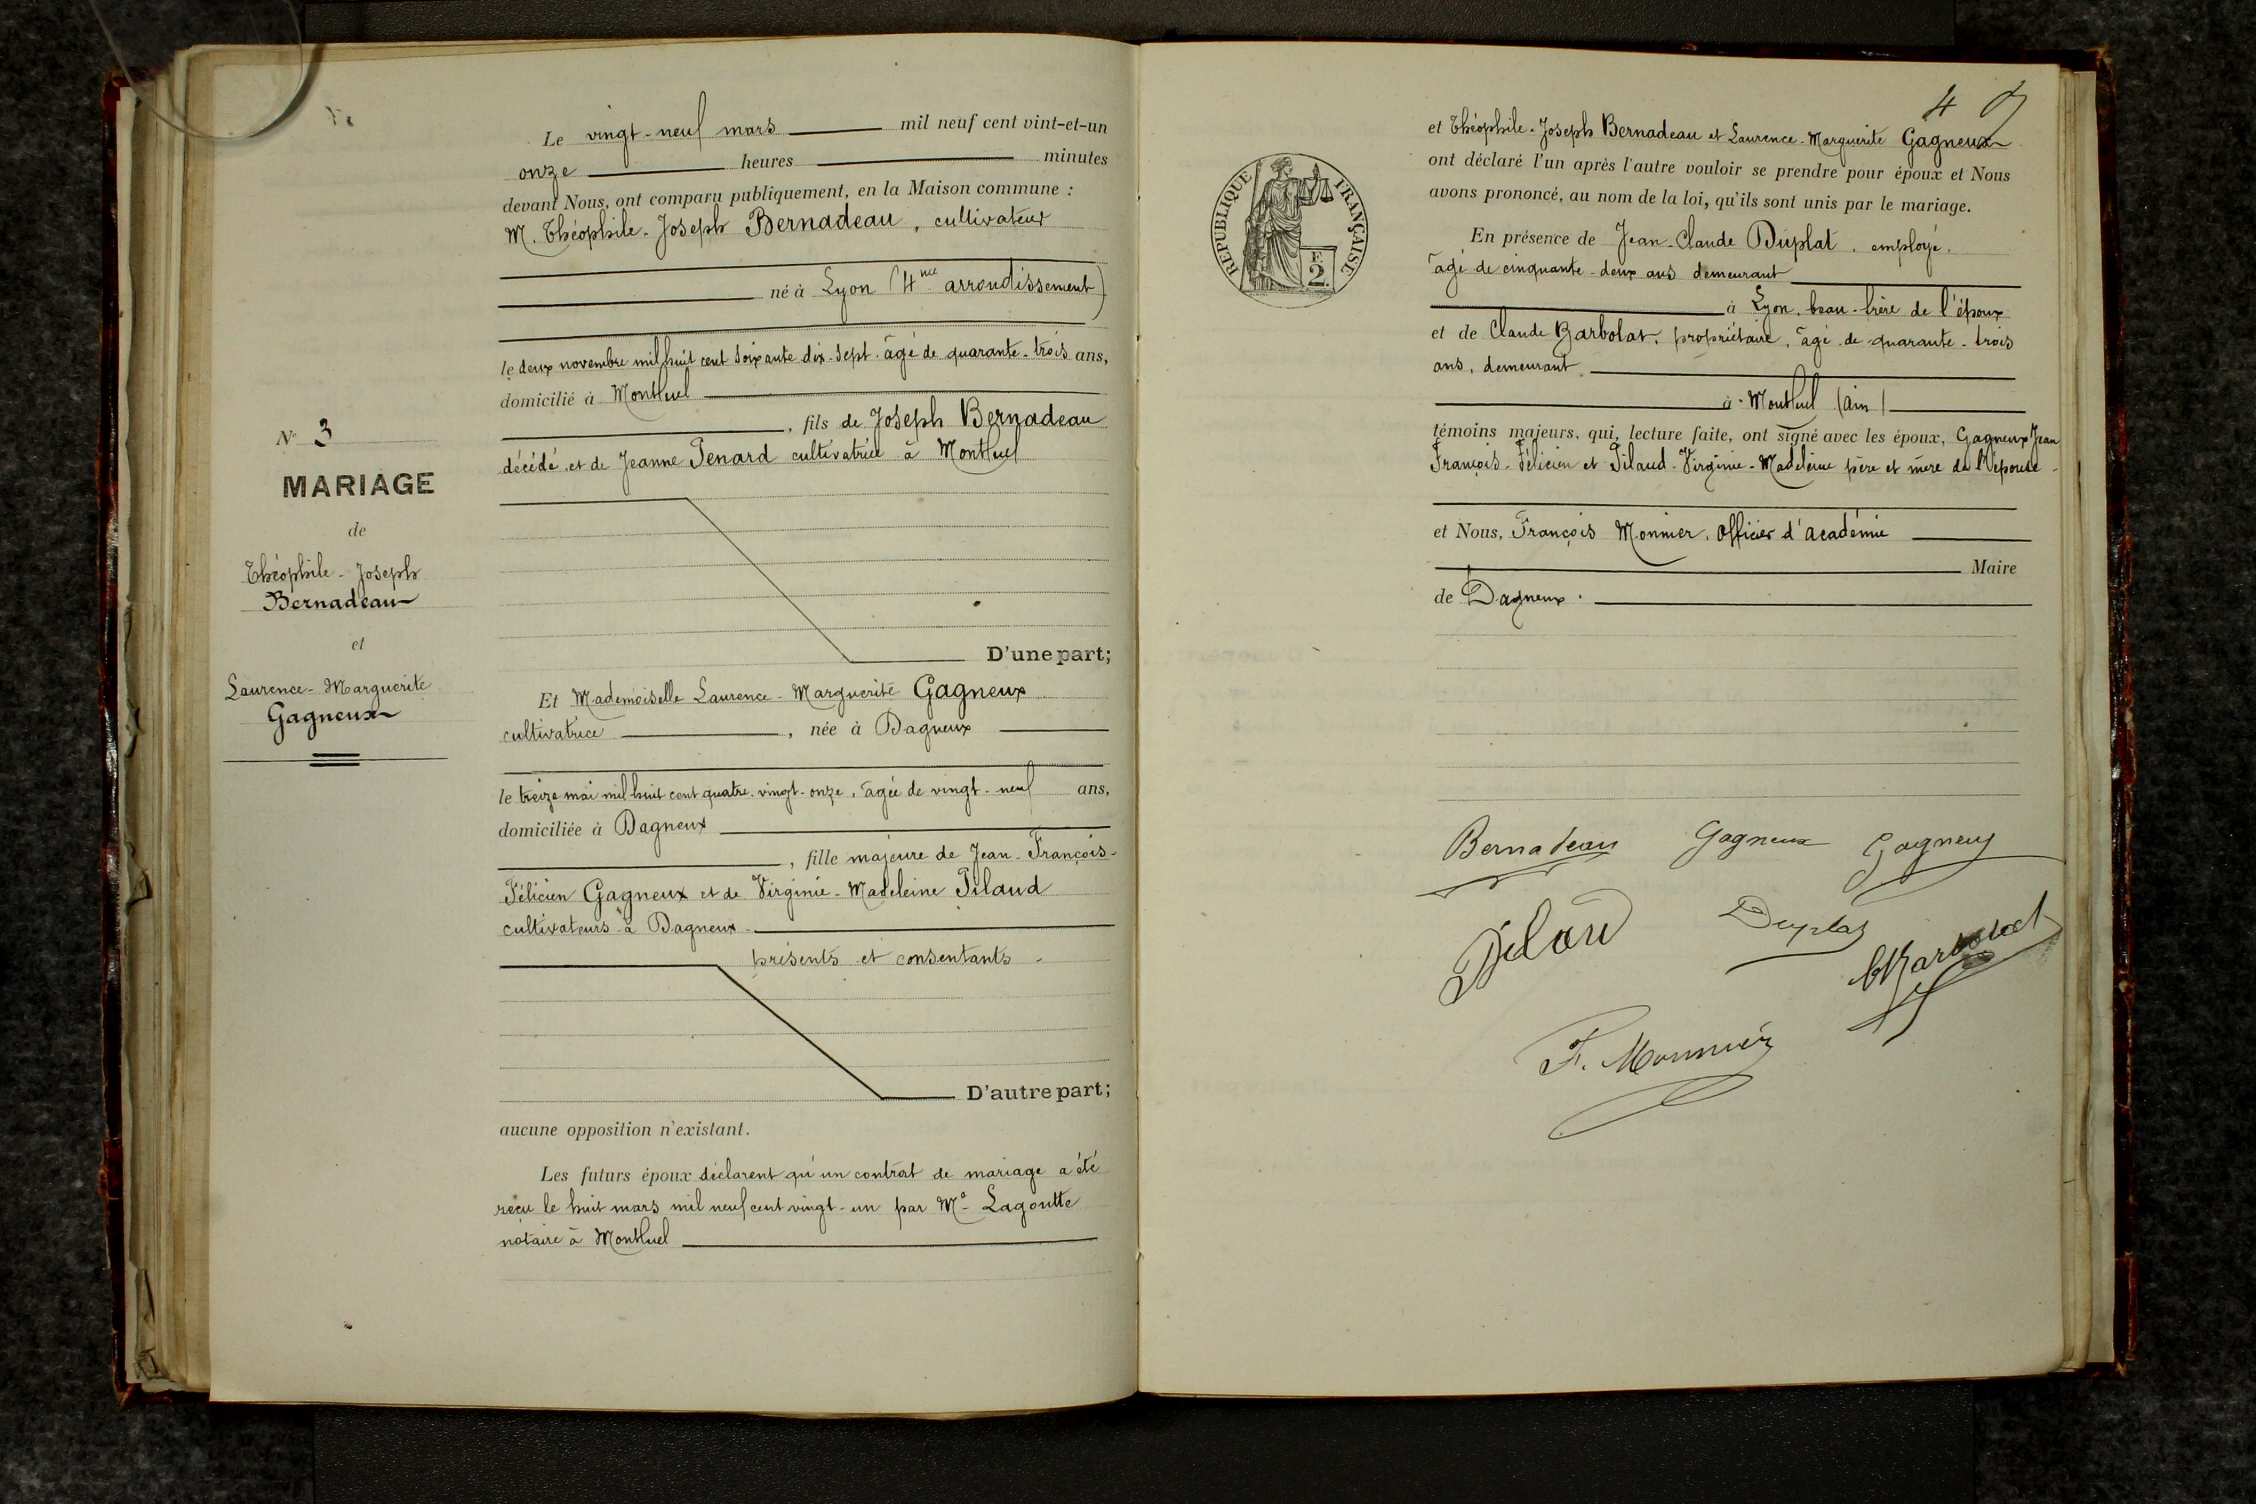 Le vingt-neuf mars mil neuf cent vint-et-un
onze heures minutes
devant Nous, ont comparu publiquement, en la Maison commune :
M. Théophile-Joseph Bernadeau, cultivateur
né à Lyon (4me arrondissement)
le deux novembre mil huit cent soixante dix-sept. âgé de quarante-trois ans,
domicilié à Montluel
, fils de Joseph Bernadeau
décédé et de Jeanne Penard cultivatrice à Montluel
D'une part;
Et Mademoiselle Laurence-Marguerite Gagneux
cultivatrice , née à Dagneux
le treize mai mil huit cent quatre-vingt-onze, âgée de vingt-neuf ans,
domiciliée à Dagneux
, fille majeure de Jean-François-
Félicien Gagneux et de Virginie-Madeleine Pilaud
cultivateurs à Dagneux
présents et consentants.
D'autre part;
aucune opposition n'existant.
Les futurs époux déclarent qu'un contrat de mariage a été
reçu le huit mars mil neuf cent vingt-un par Me Lagoutte
notaire à Montluel
N° 3
MARIAGE
de
Théophile-Joseph
Bernadeau
et
Laurence-Marguerite
Gagneux
4
RÉPUBLIQUE FRANÇAISE
F.
2.
et Théophile-Joseph Bernadeau et Laurence-Marguerite Gagneux
ont déclaré l'un après l'autre vouloir se prendre pour époux et Nous
avons prononcé, au nom de la loi, qu'ils sont unis par le mariage.
En présence de Jean-Claude Duplat. employé.
âgé de cinquante-deux ans demeurant
à Lyon. beau-frère de l'époux
et de Claude Barbolat. propriétaire, âgé de quarante-trois
ans, demeurant
à Montluel (Ain)
témoins majeurs, qui, lecture faite, ont signé avec les époux, Gagneux Jean
François-Félicien et Pilaud-Virginie-Madeleine père et mère de l'épouse
et Nous, François Monnier. Officier d'académie
Maire
de Dagneux.
Bernadeau Gagneux Gagneux
Pilaud Duplat
F. Monnier